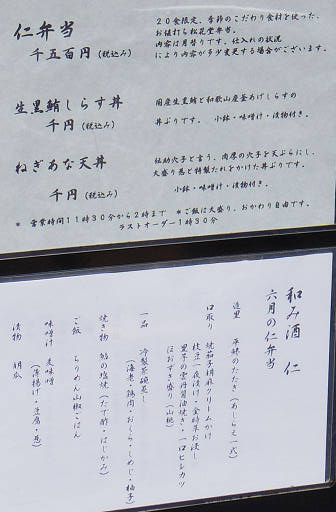 仁弁当
千五百円(税込み)
20食限定、季節のこだわり食材を使った、
お値打ち松花堂弁当。
内容は月替りです。仕入れの状況
により内容が多少変更する場合がございます。
生黒鮪しらす丼
千円(税込み)
国産生黒鮪と和歌山産釜あげしらすの
丼ぶりです。 小鉢・味噌汁・漬物付き。
ねぎあな天丼
千円(税込み)
伝助穴子と言う、肉厚の穴子を天ぷらにし、
大盛り葱と特製たれをかけた丼ぶりです。
小鉢・味噌汁・漬物付き。
* 営業時間11時30分から2時まで *ご飯は大盛り、おかわり自由です。
ラストオーダー1時30分
和み酒 仁
六月の仁弁当
造里 平鯵のたたき(あしらえ一式)
口取り 焼茄子胡麻クリームかけ
枝豆一夜漬け・金時草お浸し
里芋の雲丹醤油焼き・一口ヒレカツ
ほおずき盛り(山桃)
一品 冷製茶碗蒸し
(海老・鶏肉・おくら・しめじ・柚子)
焼き物 鮎の塩焼(たで酢・はじかみ)
ご飯 ちりめん山椒ごはん
味噌汁 麦味噌
(薄揚げ・豆腐・葱)
漬物 胡瓜